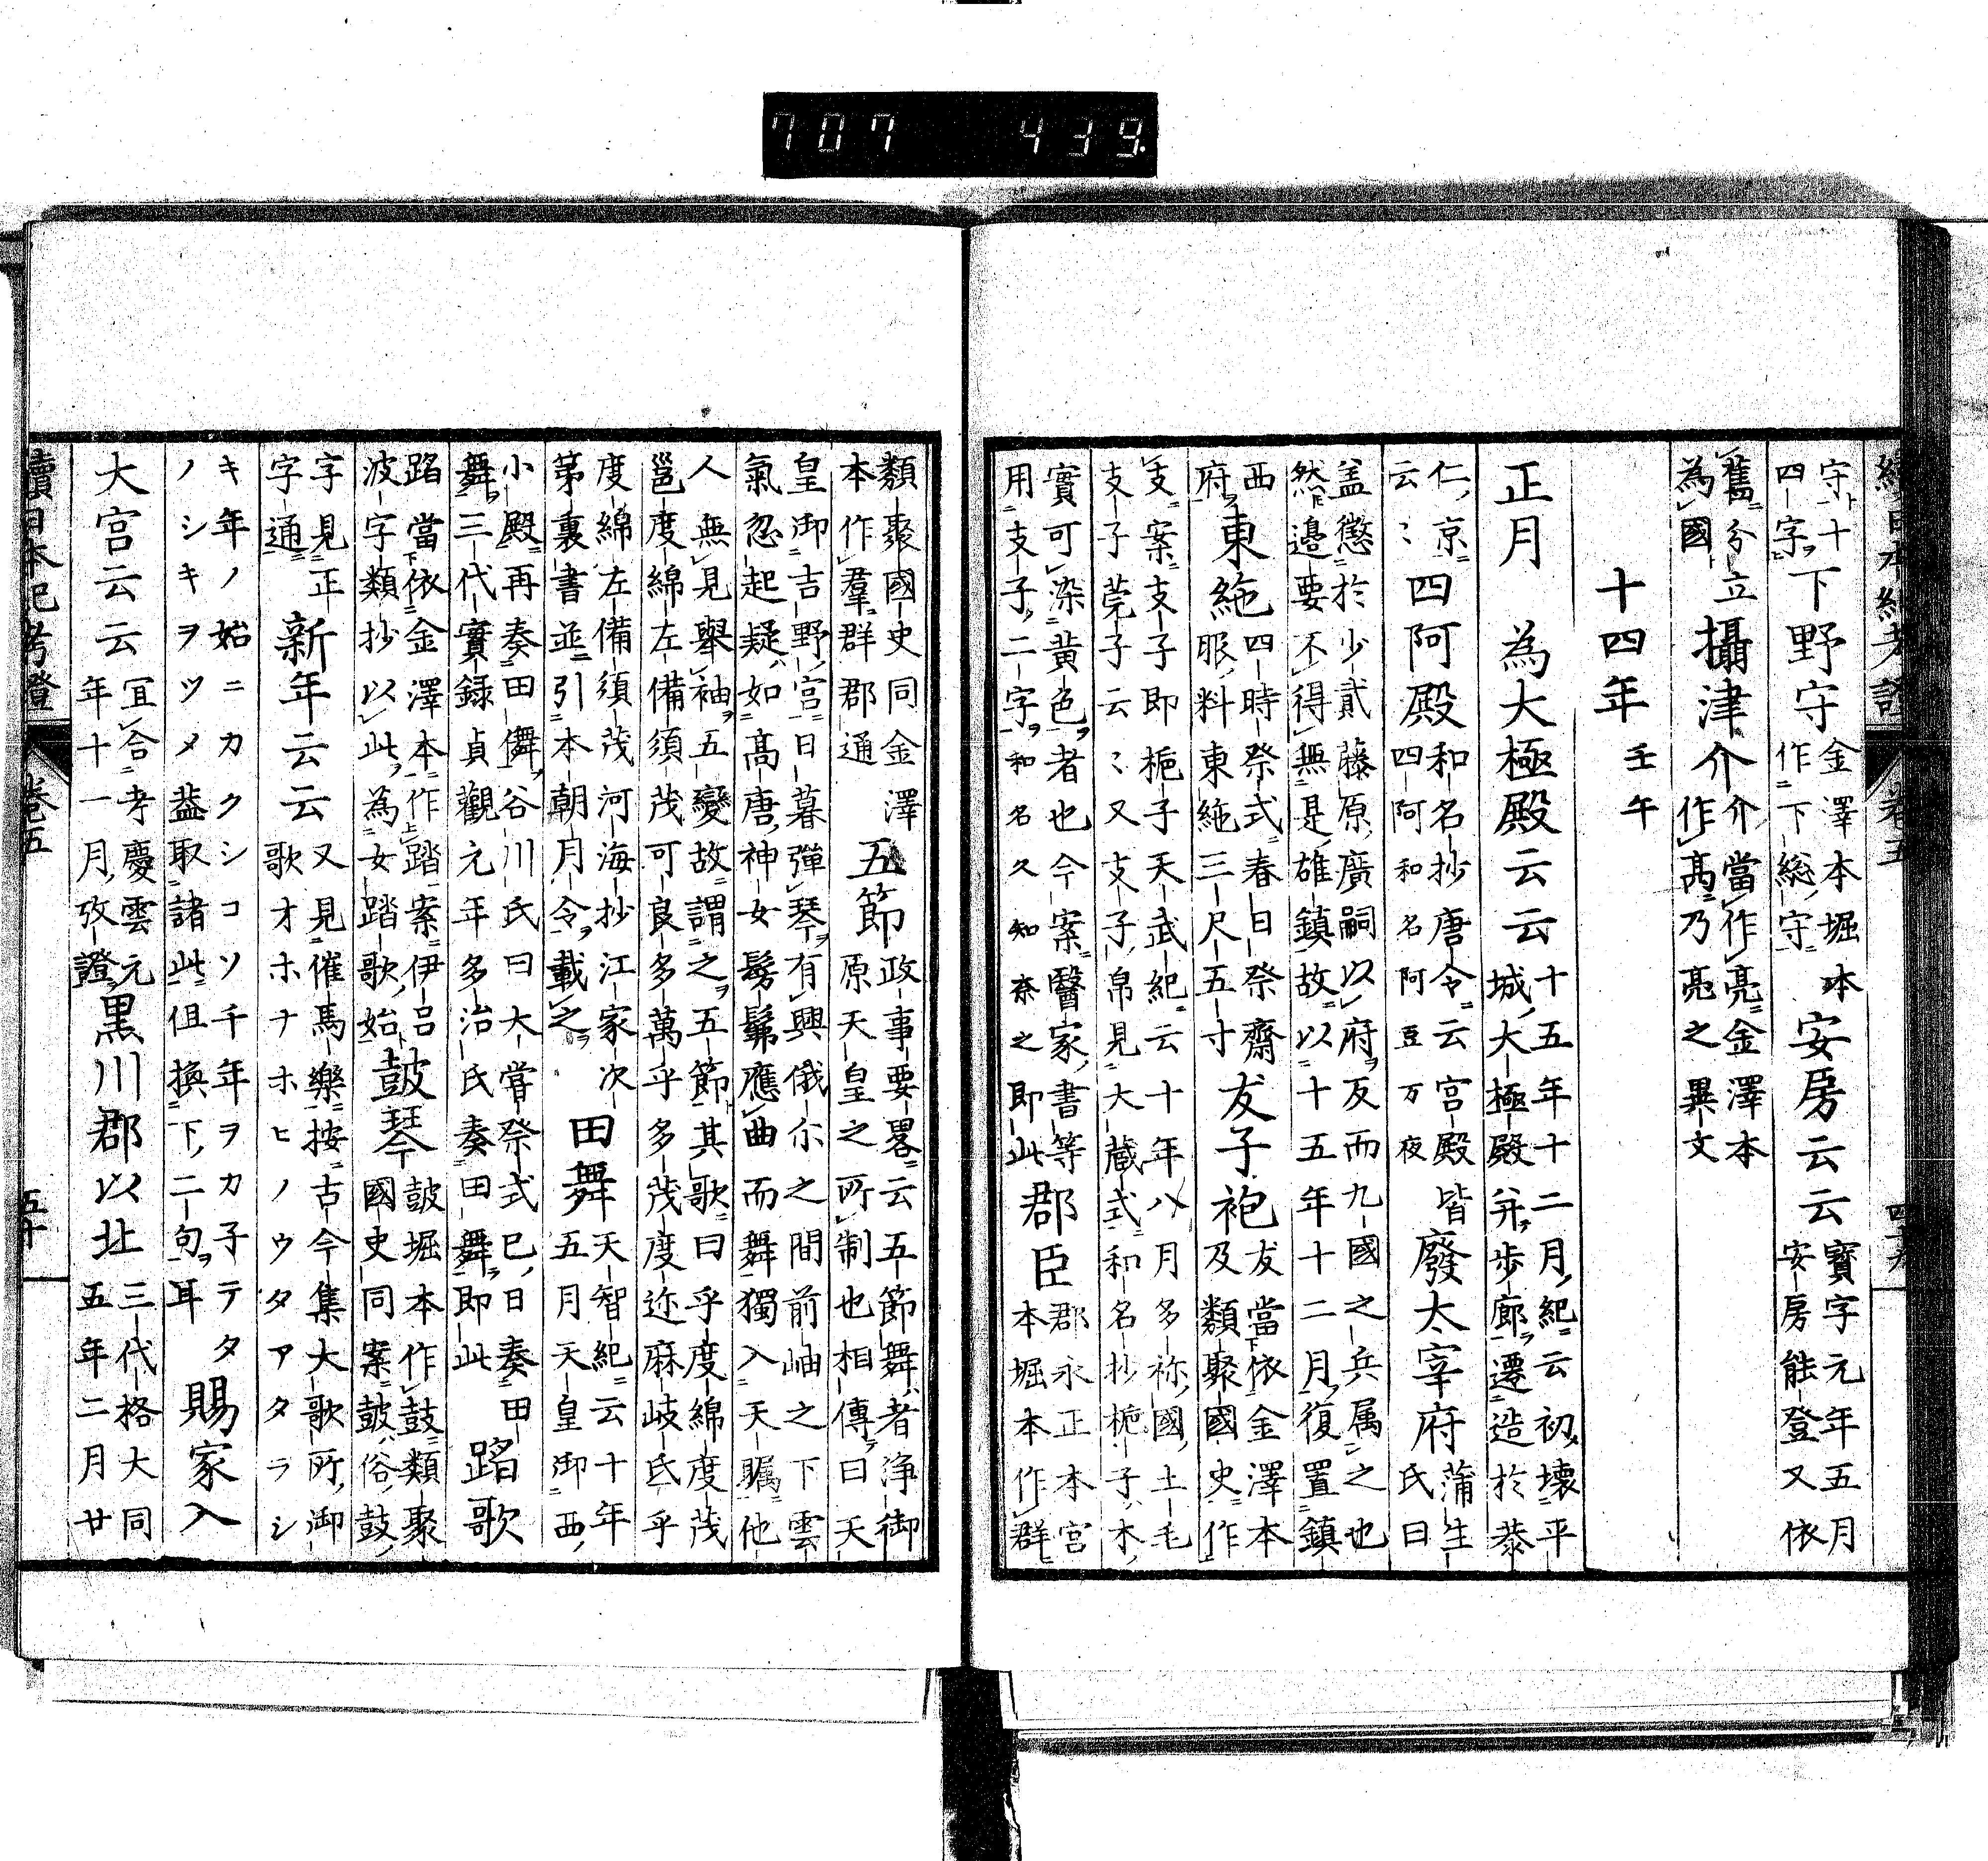 707 439.
續日本紀考證 卷五 四十九
守十 金澤本堀本
四字 下野守 作下総守 安房云云 寶字元年五月
安房能登又依
舊分立
為國 攝津介 介當作亮金澤本
作髙乃亮之異文
十四年 壬午
正月 為大極殿云云 十五年十二月紀云初壞平
城大極殿并歩廊遷造於恭
仁京
云〻 四阿殿 和名抄唐令云宮殿皆
四阿和名阿豆万夜 廢太宰府 蒲生
氏曰
盖懲於少貳藤原廣嗣以府反而九國之兵属之也
然邊要不得無是雄鎮故以十五年十二月復置鎮
西
府 東絁 四時祭式春日祭齋
服料東絁三尺五寸 友子袍 友當依金澤本
及類聚國史作
支案支子即梔子天武紀云十年八月多祢國土毛
支子莞子云〻又支子帛見大蔵式和名抄梔子木
實可染黃色者也今案醫家書等
用支子二字和名久知奈之即此 郡臣 郡永正本宮
本堀本作群
類聚國史同金澤
本作羣群郡通 五節 政事要畧云五節舞者浄御
原天皇之所制也相傳曰天
皇御吉野宮日暮彈琴有興俄尓之間前岫之下雲
氣忽起疑如髙唐神女髣髴應曲而舞獨入天矚他
人無見舉袖五變故謂之五節其歌曰乎度綿度茂
邕度綿左備須茂可良多萬乎多茂度迩麻岐氐乎
度綿左備須茂河海抄江家次
第裏書並引本朝月令載之 田舞 天智紀云十年
五月天皇御西
小殿再奏田儛谷川氏曰大嘗祭式巳日奏田
舞三代實録貞觀元年多治氏奏田舞即此 蹈歌
蹈當依金澤本作踏案伊呂
波字類抄以此為女踏歌始 皷琴 皷堀本作鼓類聚
國史同案皷俗鼓
字見正
字通 新年云云 又見催馬樂按古今集大歌所御
歌オホナホヒノウタアタラシ
キ年ノ始ニカクシコソ千年ヲカ子テタ
ノシキヲツメ葢取諸此但換下二句耳 賜家入
大宮云云 冝合考慶雲元
年十一月攷證 黒川郡以北 三代格大同
五年二月廿
續日本紀考證 卷五 五十